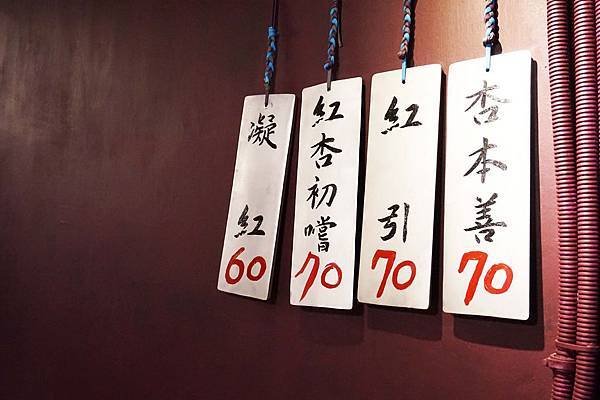 凝紅
60
紅杏初嚐
70
紅引
70
杏本善
70